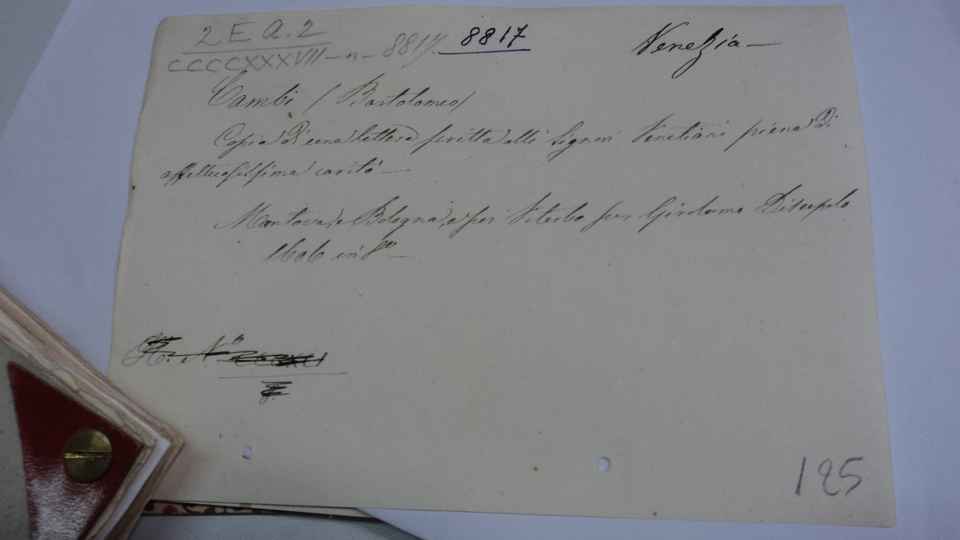 2 E A. 2
CCCCXXXVII - n - 8817. 8817 Venezia
Cambi (Bartolomeo)
Copia di una lettera scritta alli Signori Venetiani piena di
affettuosissima carità
Mantova, e Bologna, e per Viterbo per Girolamo Discepolo
1606 in
125